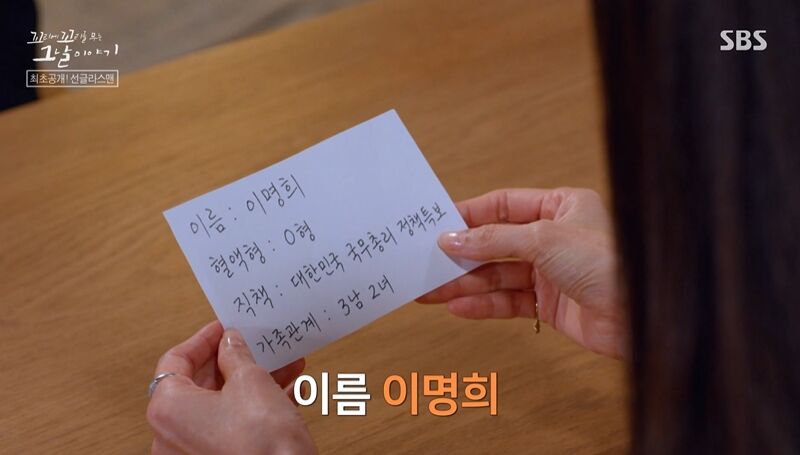 꼬리에 꼬리를 무는
그날 이야기
최초공개! 선글라스맨
SBS
이름 : 이명희
혈액형 : O형
직책 : 대한민국 국무총리 정책특보
가족관계 : 3남 2녀
이름 이명희